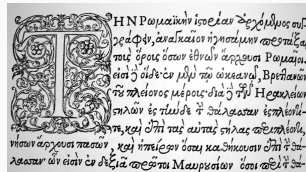 ΤΗΝ Ρωμαϊκὴν ἱστορίαν ἀρχόμενος
γράφειν, ἀναγκαῖον ἡγησάμην προτάξαι
τοὺς ὅρους ὅσων ἐθνῶν ἄρχουσι Ρωμαῖοι.
εἰσὶ δὲ οἵδε· ἐν μὲν τῷ ὠκεανῷ, Βρεττανῶν
τοῦ πλείονος μέρους· διὰ δὲ τῶν Ἡρακλείων
στηλῶν ἐς τήνδε τὴν θάλασσαν ἐσπλέοντι
τε, καὶ ἐπὶ τὰς αὐτὰς στήλας περιπλέοντι,
νήσων ἄρχουσι πασῶν, καὶ ἠπείρων ὅσαι καθήκουσιν ἐπὶ τὴν
θάλασσαν· ὧν εἰσὶν ἐν δεξιᾷ πρῶτοι Μαυρουσίων ὅσοι περὶ τὴν θά-